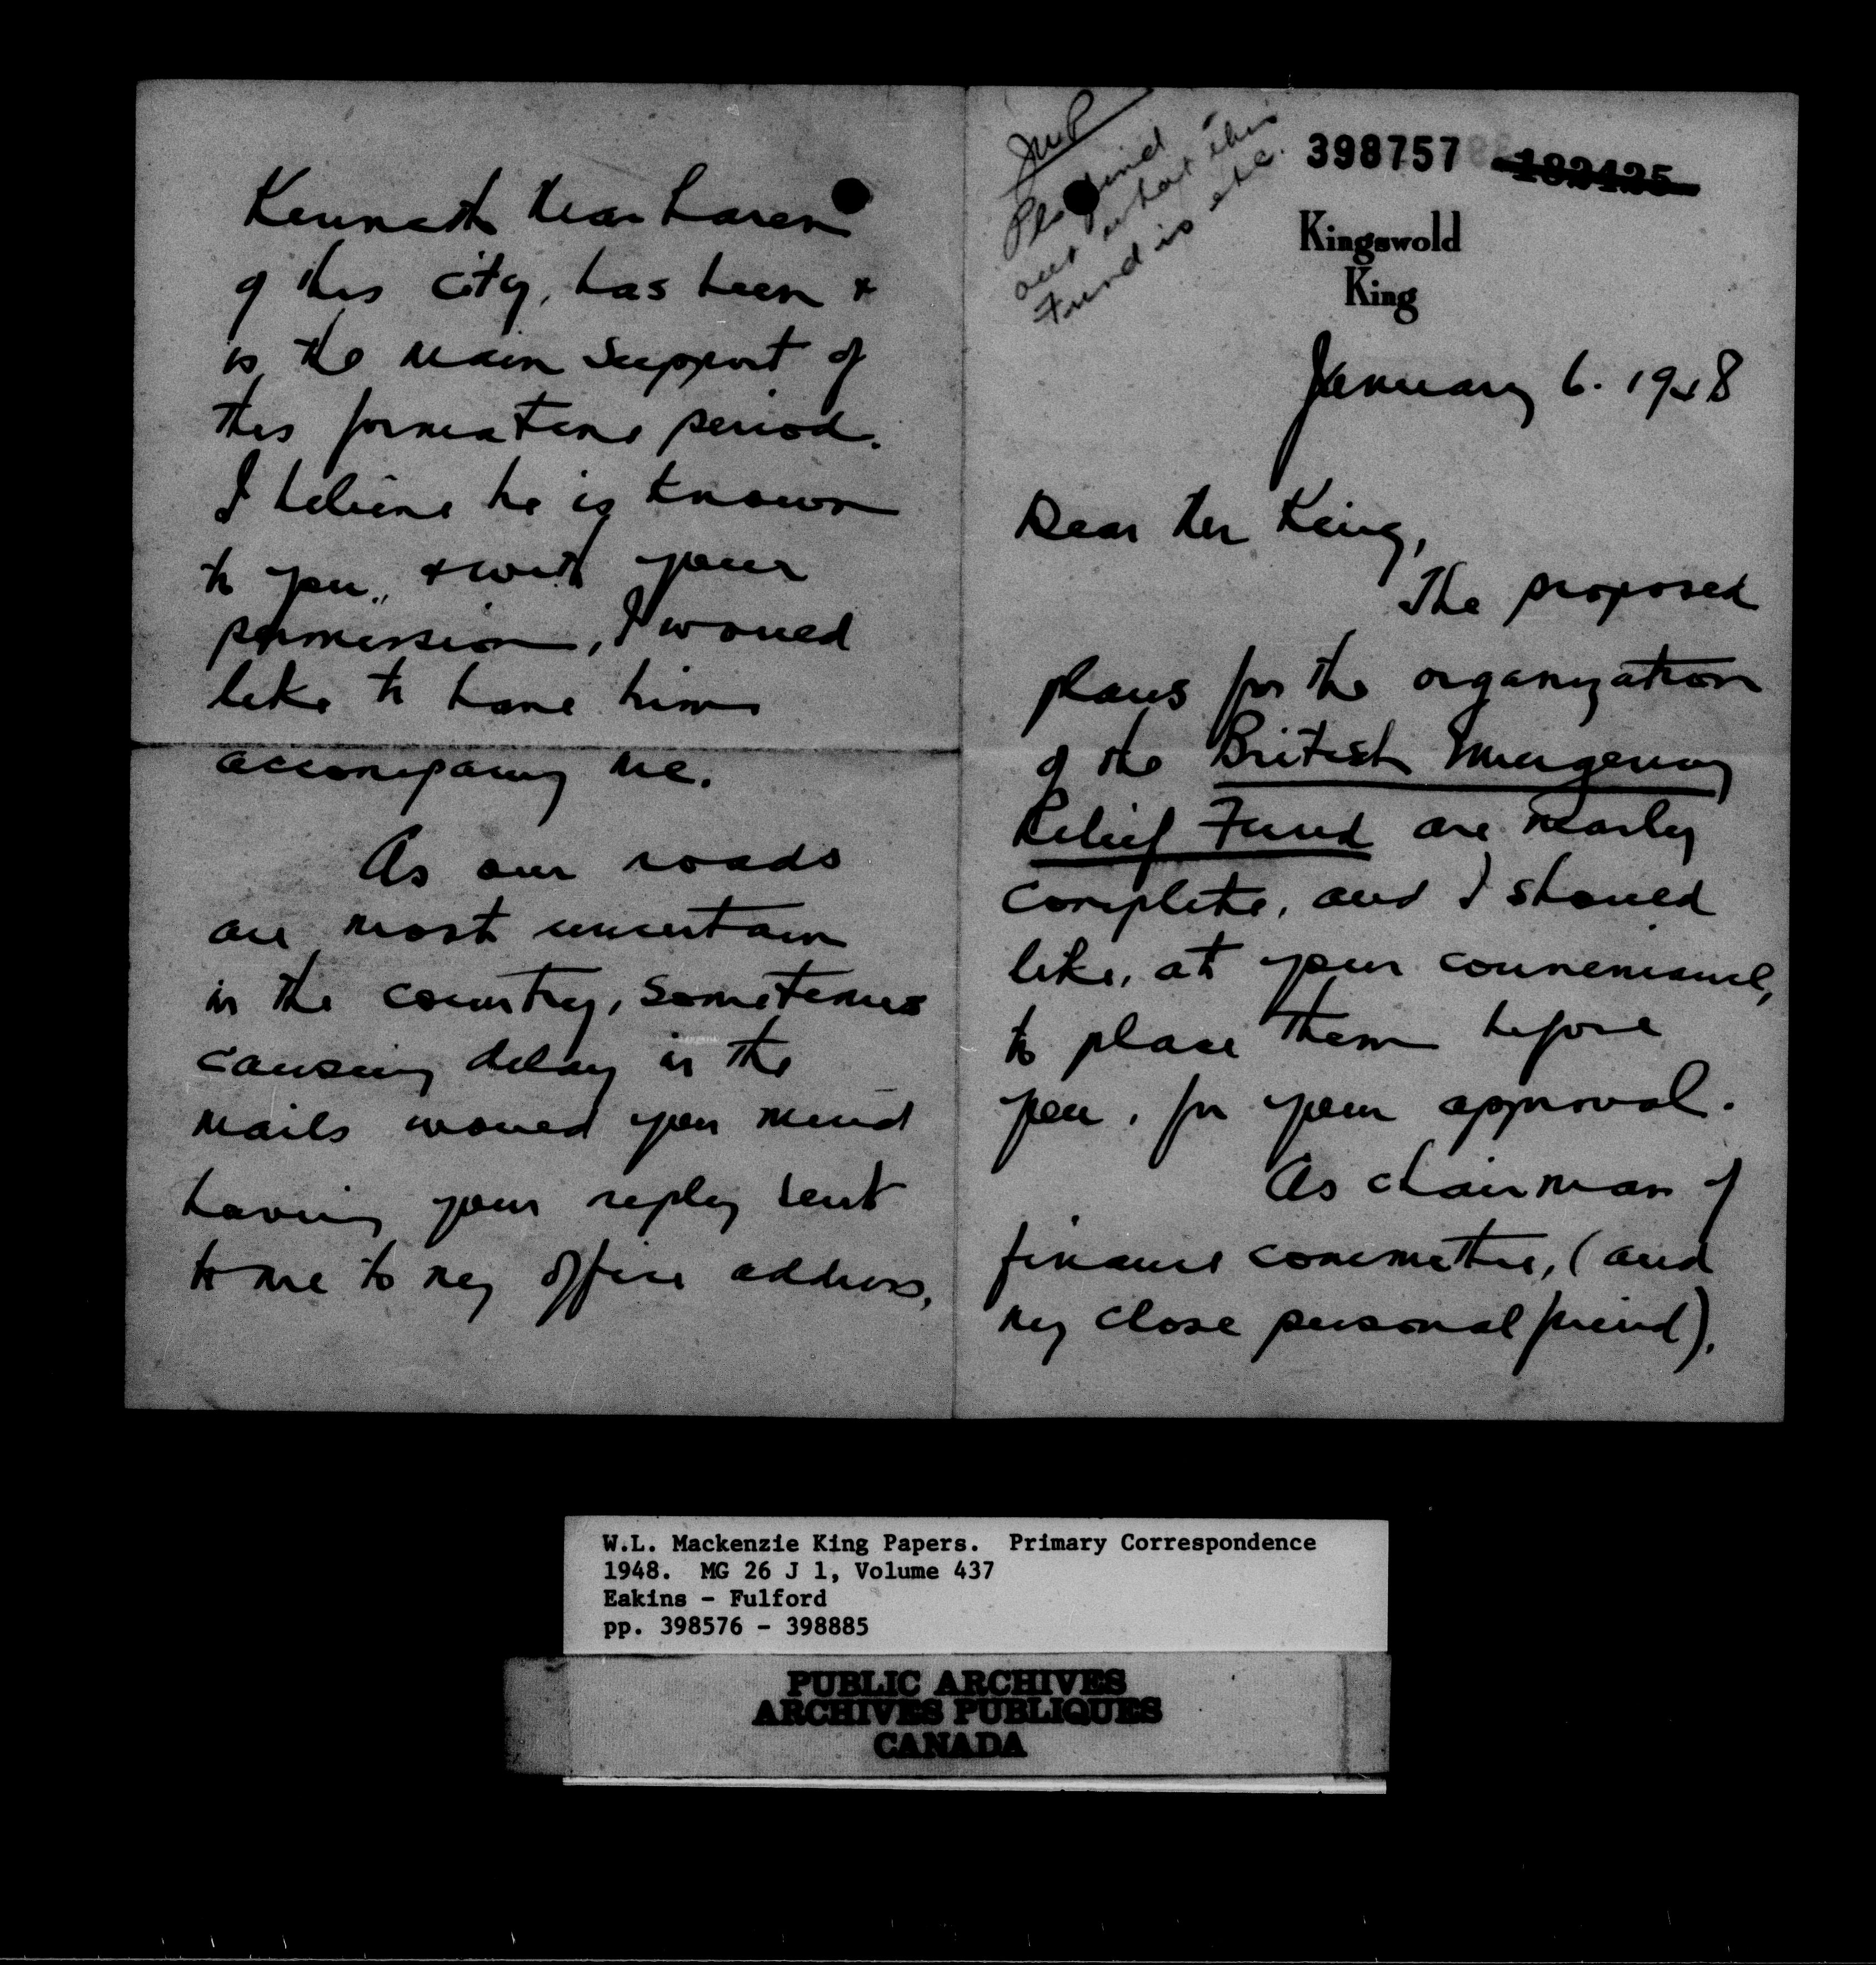 JWP
Pls find
out what this
Fund is etc.
398757
182425
Kingswold
King
January 6. 1948
Dear Mr King,
The proposed
plans for the organization
of the British Emergency
Relief Fund are nearly
complete, and I should
like, at your convenience,
to place them before
you, for your approval.
As chairman of
finance committee, (and
my close personal friend),
Kenneth MacLaren
of this city, has been +
is the main support of
this formative period.
I believe he is known
to you, + with your
permission, I would
like to have him
accompany me.
As our roads
are most uncertain
in the country, sometimes
causing delay in the
mails would you mind
having your reply sent
to me to my office address,
W.L. Mackenzie King Papers. Primary Correspondence
1948. MG 26 J 1, Volume 437
Eakins - Fulford
pp. 398576 - 398885
PUBLIC ARCHIVES
ARCHIVES PUBLIQUES
CANADA